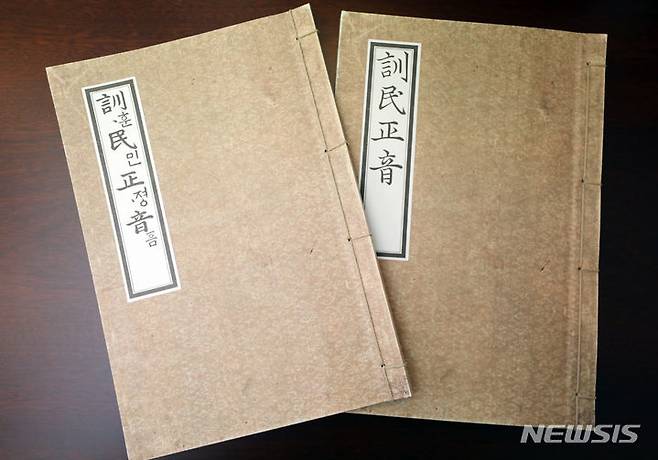 訓·훈民민正·졍音ᅙᅳᆷ
訓民正音
NEWSIS